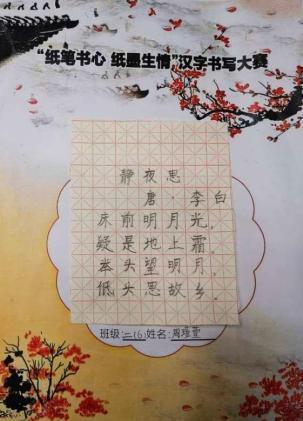 “纸笔书心 纸墨生情”汉字书写大赛
静夜思
唐·李白
床前明月光，
疑是地上霜。
举头望明月，
低头思故乡。
班级:二(6)姓名:周瑾萱